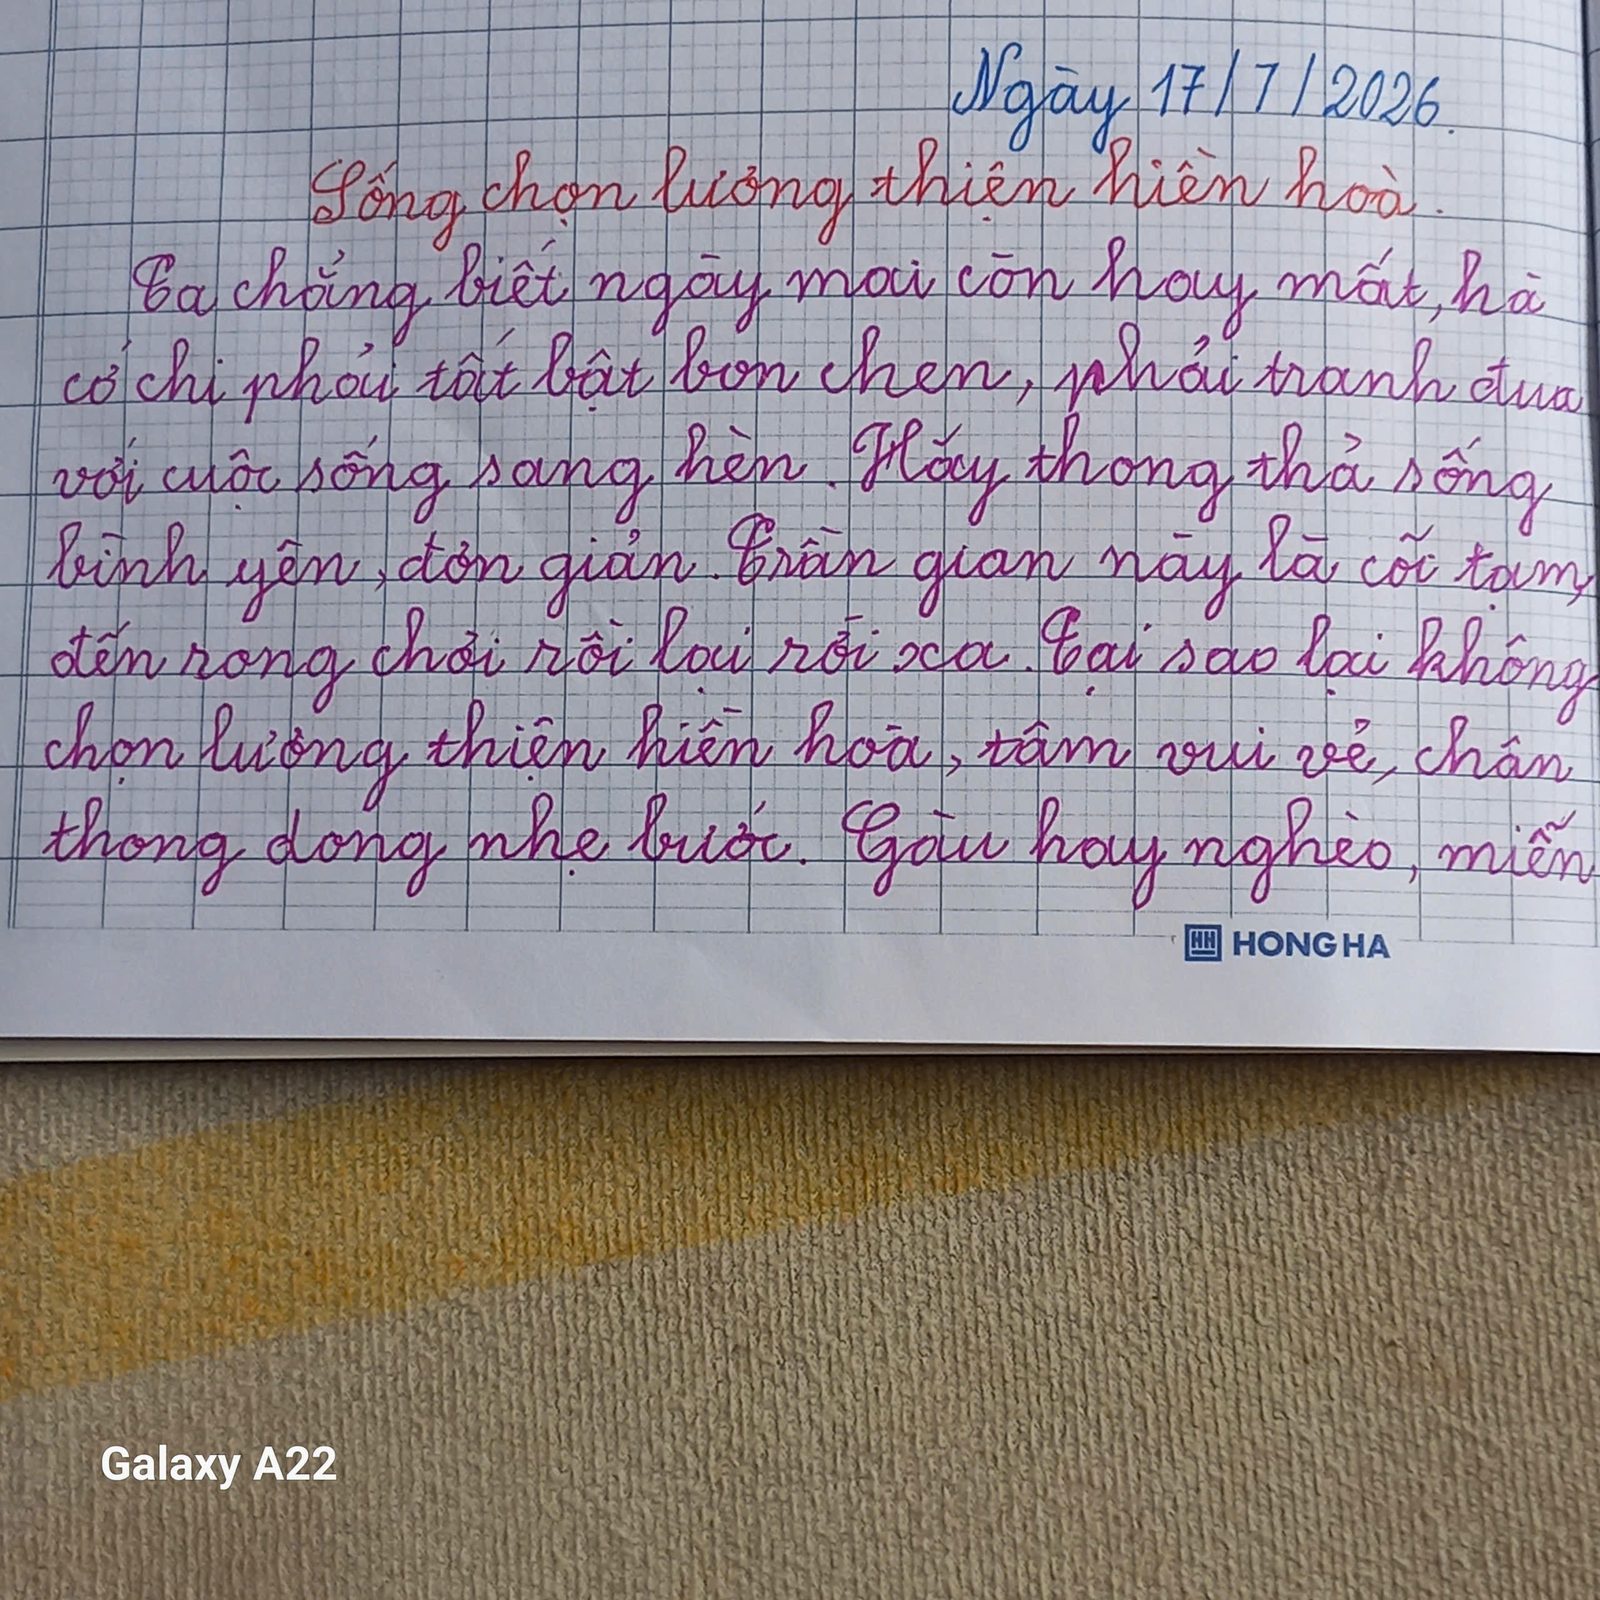 Ngày 17/7/2026.
Sống chọn lương thiện hiền hoà.
Ta chẳng biết ngày mai còn hay mất, hà
cớ chi phải tất bật bon chen, phải tranh đua
với cuộc sống sang hèn. Hãy thong thả sống
bình yên, đơn giản. Trần gian này là cõi tạm,
đến rong chơi rồi lại rời xa. Tại sao lại không
chọn lương thiện hiền hoà, tâm vui vẻ, chân
thong dong nhẹ bước. Giàu hay nghèo, miễn
HH HONG HA
Galaxy A22